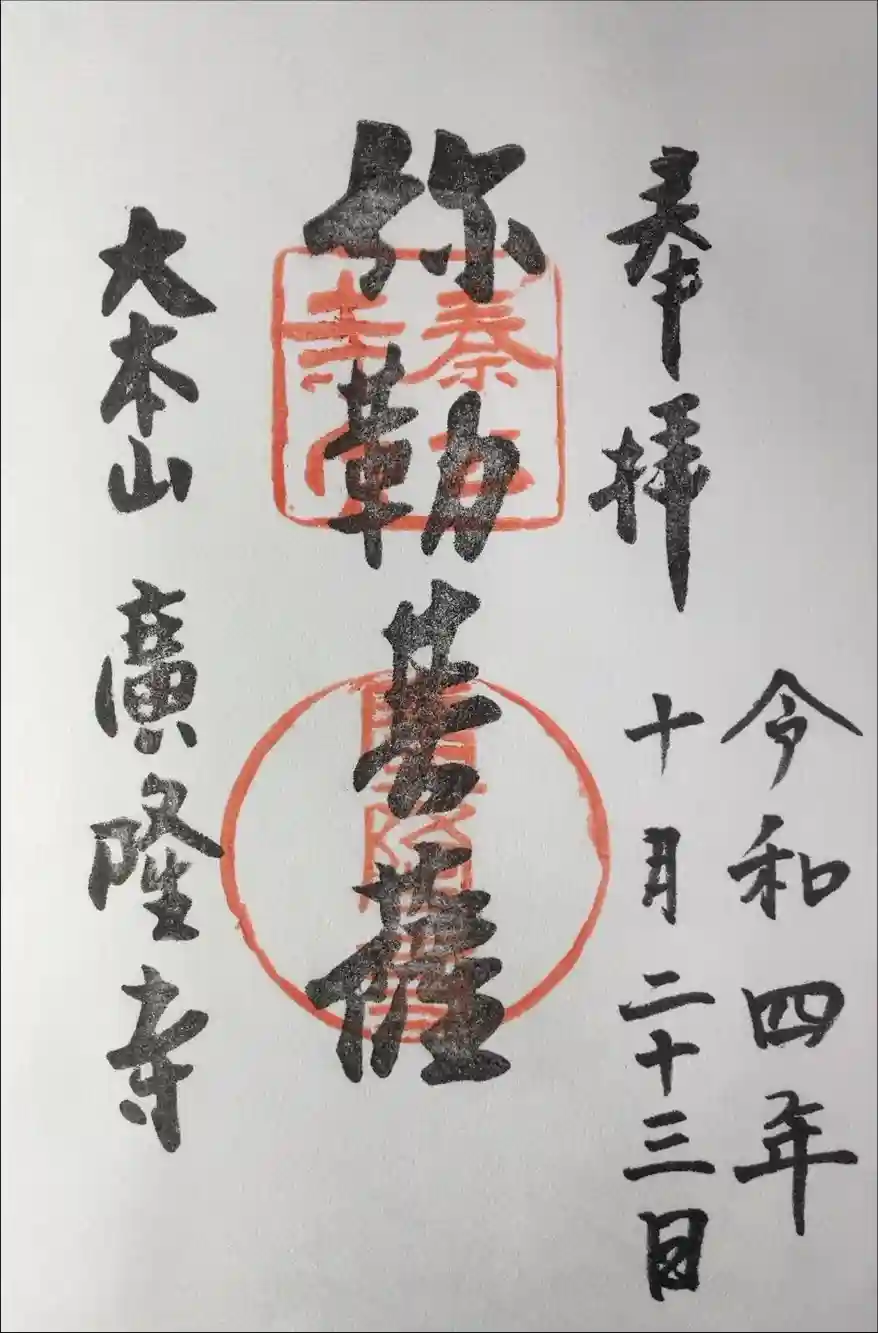 奉拝
令和四年
十月二十三日
弥勒菩薩
大本山 廣隆寺